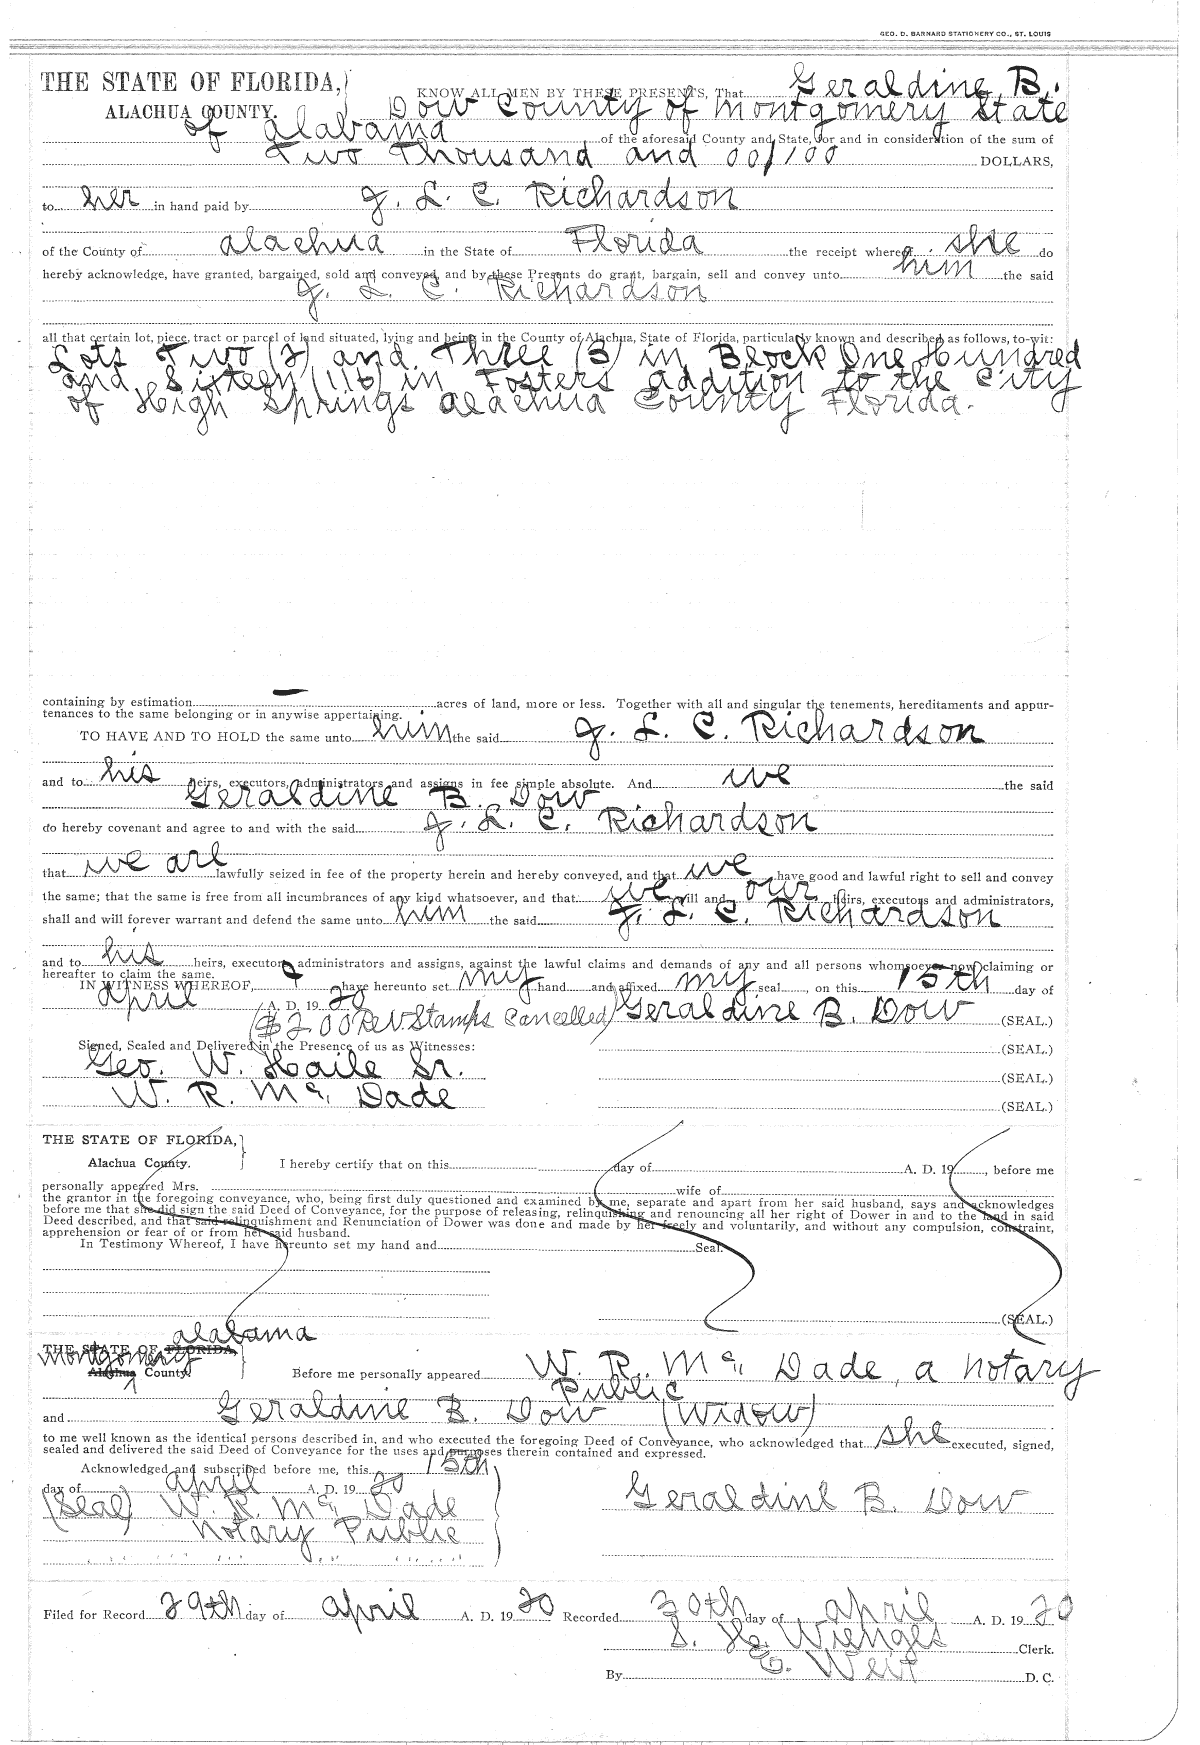 GEO. D. BARNARD STATIONERY CO., ST. LOUIS
THE STATE OF FLORIDA, KNOW ALL MEN BY THESE PRESENTS, That Geraldine B.
ALACHUA COUNTY. Dow County of Montgomery State
of alabama of the aforesaid County and State, for and in consideration of the sum of
Two Thousand and 00/100 DOLLARS,
to her in hand paid by J. L. C. Richardson
of the County of alachua in the State of Florida the receipt whereof she do
hereby acknowledge, have granted, bargained, sold and conveyed, and by these Presents do grant, bargain, sell and convey unto him the said
J. L. C. Richardson
all that certain lot, piece, tract or parcel of land situated, lying and being in the County of Alachua, State of Florida, particularly known and described as follows, to-wit:
Lots Two (2) and Three (3) in Block One Hundred
and Sixteen (116) in Fosters addition to the City
of High Springs alachua County Florida.
containing by estimation — acres of land, more or less. Together with all and singular the tenements, hereditaments and appur-
tenances to the same belonging or in anywise appertaining.
TO HAVE AND TO HOLD the same unto him the said J. L. C. Richardson
and to his heirs, executors, administrators and assigns in fee simple absolute. And we the said
Geraldine B. Dow
do hereby covenant and agree to and with the said J. L. C. Richardson
that we are lawfully seized in fee of the property herein and hereby conveyed, and that we have good and lawful right to sell and convey
the same; that the same is free from all incumbrances of any kind whatsoever, and that we will and our heirs, executors and administrators,
shall and will forever warrant and defend the same unto him the said J. L. C. Richardson
and to his heirs, executors, administrators and assigns, against the lawful claims and demands of any and all persons whomsoever now claiming or
hereafter to claim the same.
IN WITNESS WHEREOF, I have hereunto set my hand and affixed my seal, on this 15th day of
april A. D. 19 20
($2.00 Rev. Stamps Cancelled) Geraldine B. Dow (SEAL.)
Signed, Sealed and Delivered in the Presence of us as Witnesses: (SEAL.)
Geo. W. Haile Sr. (SEAL.)
W. R. Mc Dade (SEAL.)
THE STATE OF FLORIDA,
Alachua County. I hereby certify that on this day of A. D. 19 , before me
personally appeared Mrs. wife of
the grantor in the foregoing conveyance, who, being first duly questioned and examined by me, separate and apart from her said husband, says and acknowledges
before me that she did sign the said Deed of Conveyance, for the purpose of releasing, relinquishing and renouncing all her right of Dower in and to the land in said
Deed described, and that said relinquishment and Renunciation of Dower was done and made by her freely and voluntarily, and without any compulsion, constraint,
apprehension or fear of or from her said husband.
In Testimony Whereof, I have hereunto set my hand and Seal.
(SEAL.)
alabama
THE STATE OF FLORIDA,
Montgomery
Alachua County. Before me personally appeared W. R. Mc Dade, a notary
Public
and Geraldine B. Dow (Widow)
to me well known as the identical persons described in, and who executed the foregoing Deed of Conveyance, who acknowledged that she executed, signed,
sealed and delivered the said Deed of Conveyance for the uses and purposes therein contained and expressed.
Acknowledged and subscribed before me, this 15th
day of april A. D. 19 20
(Seal) W. R. Mc Dade Geraldine B. Dow
Notary Public
Filed for Record 29th day of april A. D. 19 20 Recorded 30th day of april A. D. 19 20
S. H. Wienges Clerk.
By D. C.